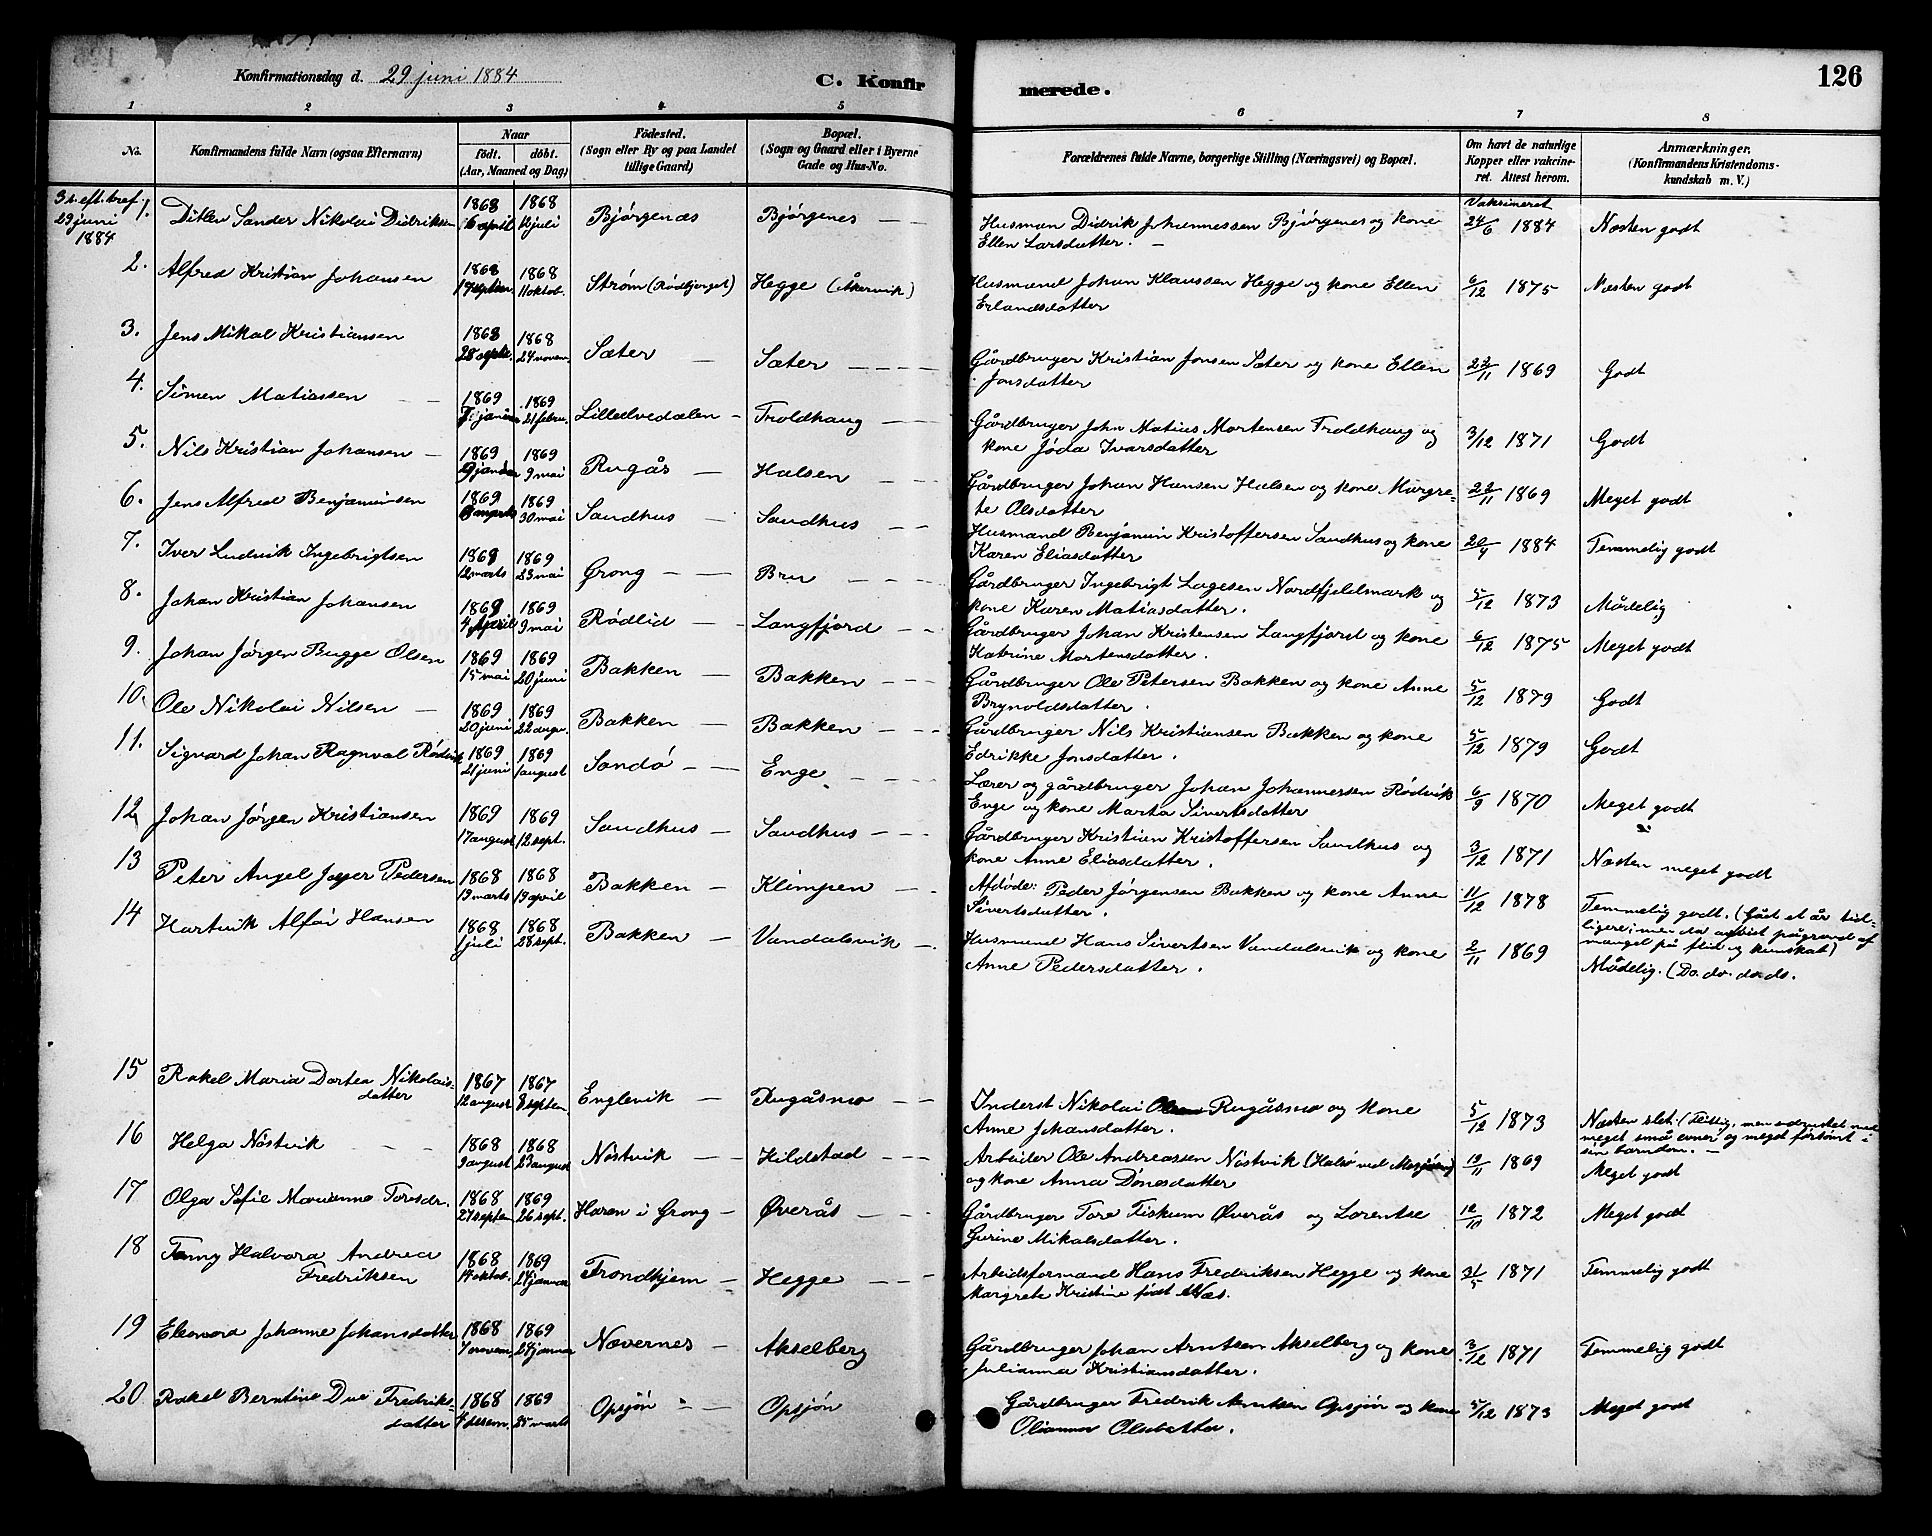 Konfirmationsdag d. 29 juni 1884
C. Konfirmerede.
126
1 2 3 4 5 6 7 8
No.
Konfirmandens fulde Navn (ogsaa Efternavn)
Naar
født. døbt.
(Aar, Maaned og Dag)
Fødested.
(Sogn eller By og paa Landet
tillige Gaard)
Bopæl.
(Sogn og Gaard eller i Byerne
Gade og Hus-No.
Forældrenes fulde Navne, borgerlige Stilling (Næringsvei) og Bopæl.
Om havt de naturlige
Kopper eller vakcine-
ret. Attest herom.
Anmærkninger.
(Konfirmandens Kristendoms-
kundskab m. V.)
3 s. eft. tref.
29 juni
1884
1. Ditlev Sander Nikolai Didriksen 1868 16 april 1868 12 juli Bjørgenæs Bjørgenes
Husman Didrik Johannessen Bjørgenes og kone
Ellen Larsdatter. Vaksineret 24/6 1884 Næsten godt
2. Alfred Kristian Johansen 1868 1868 11 oktob. Strøm (Rødbjerget) Hegge (Åkervik)
Husmand Johan Klaussen Hegge og kone Ellen
Erlandsdatter 6/12 1875 Næsten godt
3. Jens Mikal Kristiansen 1868 28 septe. 1868 24 novem. Sæter Sæter
Gårdbruger Kristian Jonsen Sæter og kone Ellen
Jonsdatter 22/11 1869 Godt
4. Simen Matiassen 1869 1869 21 febru. Lilleelvedalen Troldhaug
Gårdbruger John Matias Mortensen Troldhaug og
kone Jøda Ivarsdatter 3/12 1871 Godt
5. Nils Kristian Johansen 1869 1869 9 mai Rugås Halsen
Gårdbruger Johan Hansen Halsen og kone Margre-
te Olsdatter 22/11 1869 Meget godt
6. Jens Alfred Benjaminsen 1869 1869 30 mai Sandhus Sandhus
Husmand Benjamin Kristoffersen Sandhus og kone
Karen Eliasdatter 20/4 1884 Temmelig godt
7. Iver Ludvik Ingebrigtsen 1869 12 marts 1869 23 mai Grong Bru
Gårdbruger Ingebrigt Lagesen Nordfjeldmark og
kone Karen Matiasdatter. 5/12 1873 Mådelig
8. Johan Kristian Johansen 1869 4 April 1869 9 mai Rødlid Langfjord
Gårdbruger Johan Kristensen Langfjord og kone
Katrine Mortensdatter. 6/12 1875 Meget godt
9. Johan Jørgen Bugge Olsen 1869 15 mai 1869 20 juni Bakken Bakken
Gårdbruger Ole Petersen Bakken og kone Anne
Brynoldsdatter. 5/12 1879 Godt
10. Ole Nikolai Nilsen 1869 20 juni 1869 22 augu. Bakken Bakken
Gårdbruger Nils Kristiansen Bakken og kone
Edrikke Jonsdatter. 5/12 1879 Godt
11. Sigvard Johan Ragnval Rødvik 1869 21 juni 1869 1 august Sandø Enge
Lærer og gårdbruger Johan Johannersen Rødvik
Enge og kone Marta Sivertsdatter 6/9 1870 Meget godt
12 Johan Jørgen Kristiansen 1869 17 august 1869 12 sept. Sandhus Sandhus
Gårdbruger Kristian Kristoffersen Sandhus og
kone Anne Eliasdatter. 3/12 1871 Næsten meget godt
13 Peter Angel Jesper Pedersen 1868 13 marts 1868 13 april Bakken Klimpen
Afdøde: Peder Jørgensen Bakken og kone Anne
Sivertsdatter. 11/12 1878 Temmelig godt. (Gået et år tid-
ligere, men da avvist pågrund af
mangel på flid og kunskab)
14 Hartvik Alfør Hansen 1868 1 juli 1868 28 sept. Bakken Vandalsvik
Husmand Hans Sivertsen Vandalsvik og kone
Anne Pedersdatter. 2/11 1869 Mådelig. (Do. do. do. do.
15 Rakel Maria Dortea Nikolais-
datter 1867 12 august 1867 8 septem Englevik Rugåsmo
Inderst Nikolai Olsen Rugåsmo og kone
Anne Johansdatter. 5/12 1873 Næsten slet. (Flittig, men udrustet med
meget små evner og meget forsømt i
sin barndom.
16 Helga Nøstvik 1868 9 august 1868 23 august Nøstvik Kildstad
Arbeider Ole Andreassen Nøstvik (Halsø ved Mosjøen)
og kone Anna Dønesdatter 19/11 1869 Meget godt
17 Olga Sofie Marianne Toresdr. 1868 27 septem 1869 26 sept. Haren i Grong Øverås
Gårdbruger Tore Fiskum Øverås og Lorentse
Gurine Mikalsdatter. 12/10 1872 Meget godt
18 Fanny Halvora Andrea
Fredriksen 1868 14 oktob. 1869 24 januar Trondhjem Hegge
Arbeidsformand Hans Fredriksen Hegge og kone
Margrete Kristine født Næs. 31/5 1871 Temmelig godt
19 Eleonora Johanne Johansdatter 1868 7 novem. 1869 24 januar Nævernes Akselberg
Gårdbruger Johan Arntsen Akselberg og kone
Julianna Kristiansdatter. 3/12 1871 Temmelig godt
20 Rakel Berntine Due Fredriks-
datter 1868 4 desem. 1869 25 marts Opsjøn Opsjøn
Gårdbruger Fredrik Arntsen Opsjøn og kone
Olianna Olsdatter. 5/12 1873 Meget godt